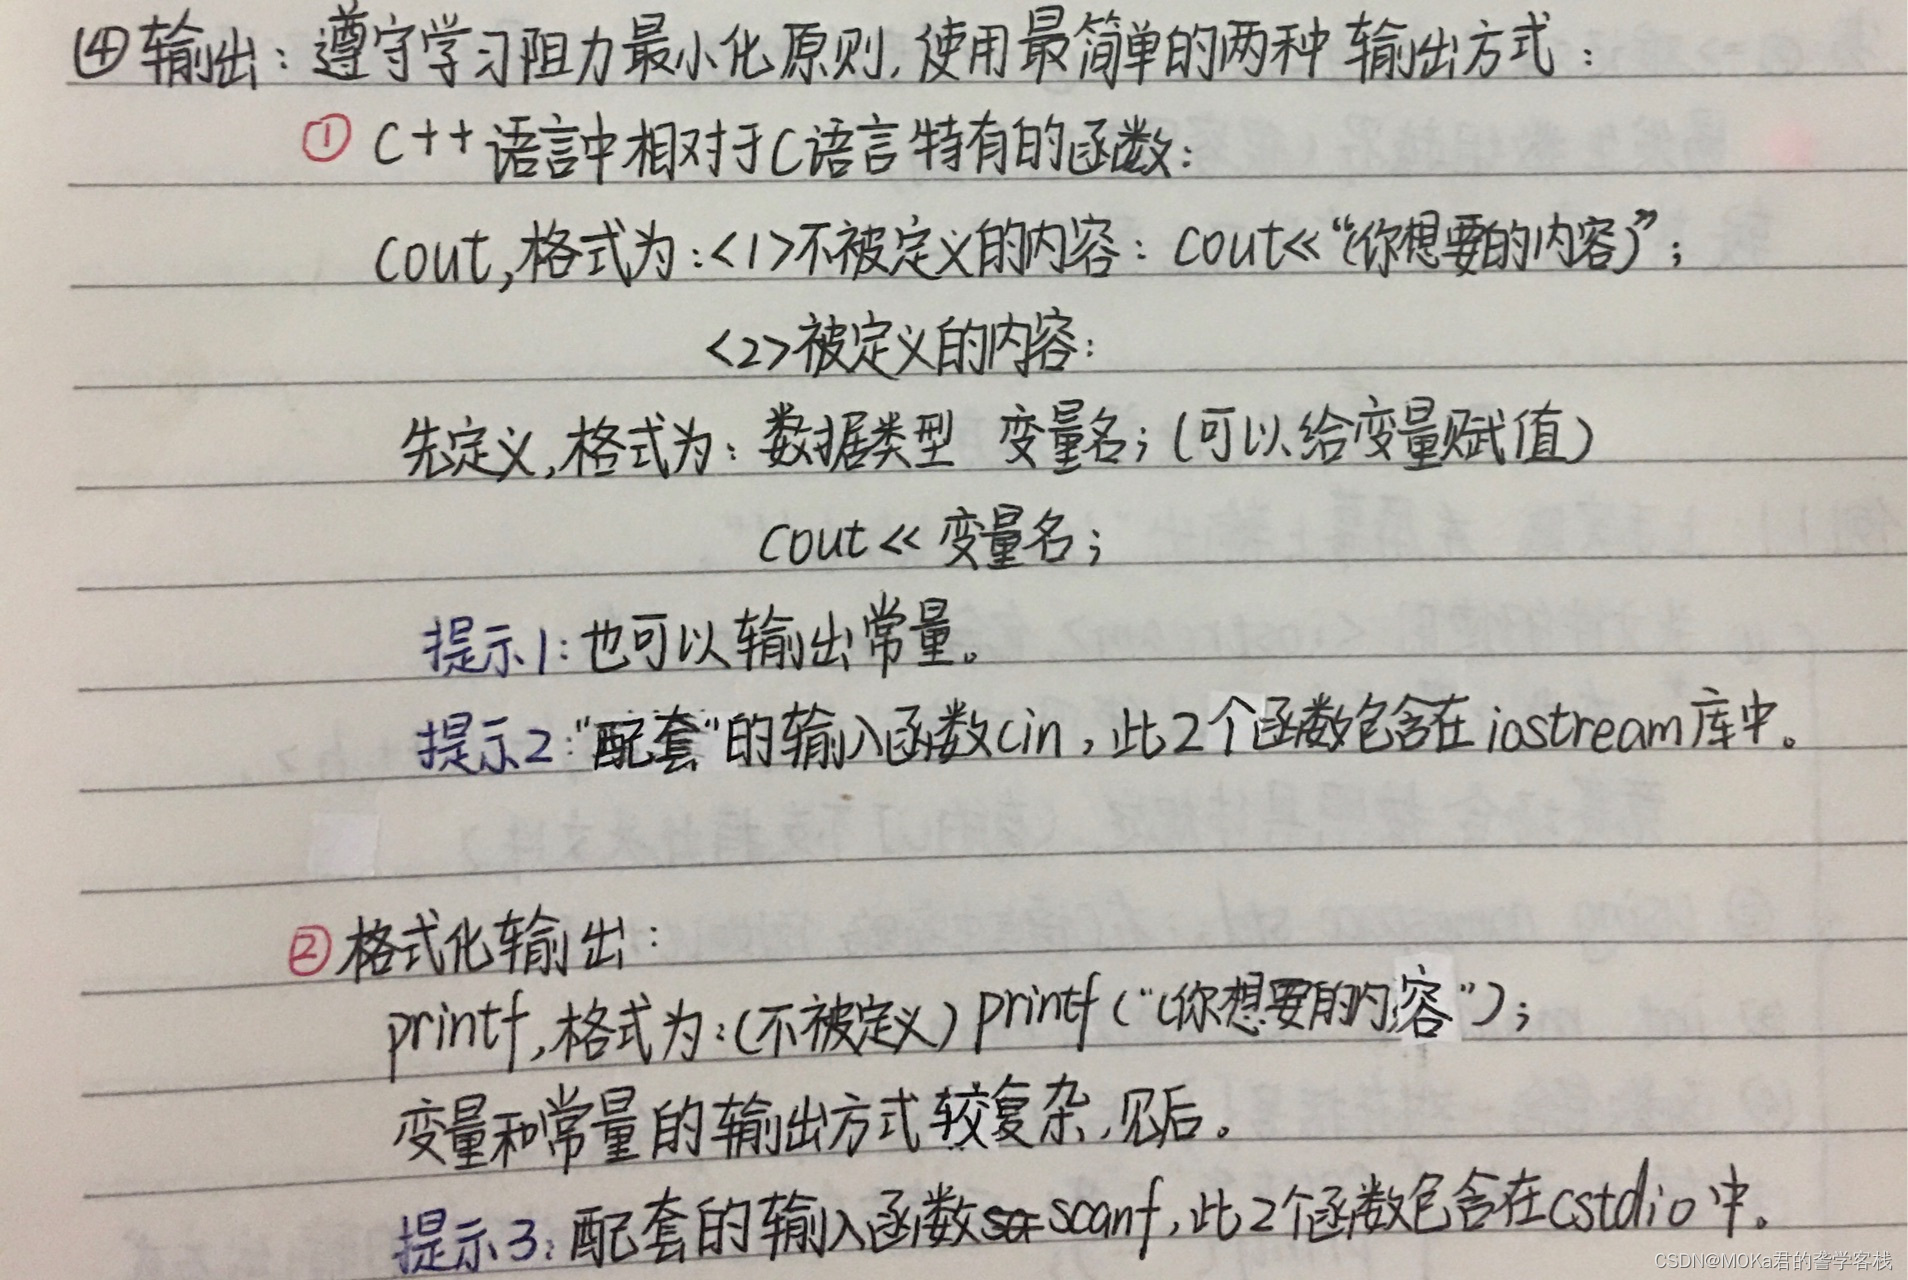 ④输出：遵守学习阻力最小化原则,使用最简单的两种 输出方式：
①C++语言中相对于C语言特有的函数：
cout,格式为:<1>不被定义的内容：cout<<“(你想要的内容)”；
<2>被定义的内容：
先定义,格式为：数据类型 变量名;(可以给变量赋值)
cout<<变量名;
提示1:也可以输出常量。
提示2:"配套"的输入函数cin,此2个函数包含在iostream库中。
②格式化输出：
printf,格式为:(不被定义)printf("(你想要的内容");
变量和常量的输出方式较复杂,见后。
提示3:配套的输入函数scanf,此2个函数包含在cstdio中。
CSDN@MOKa君的耆学客栈